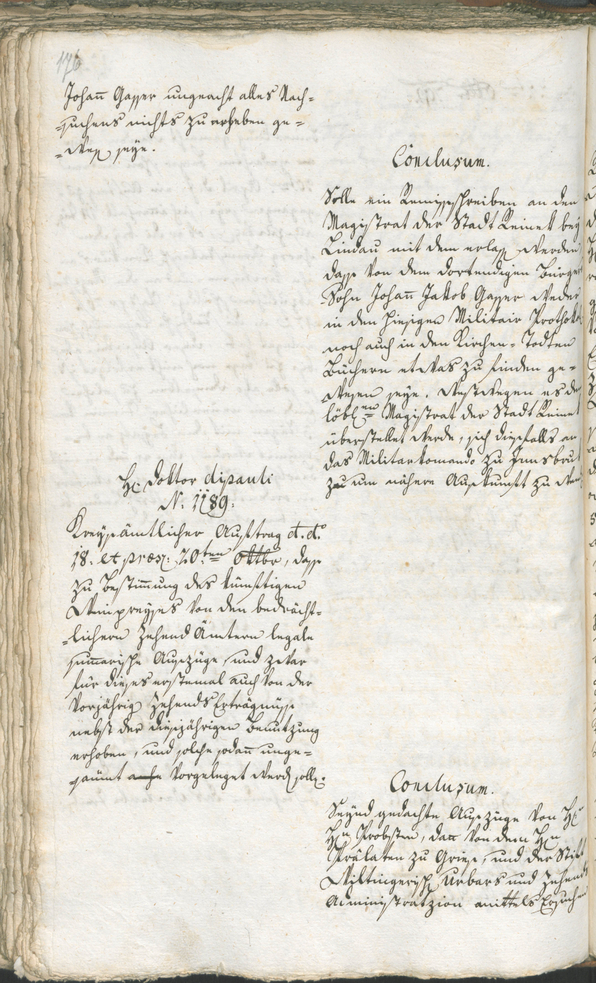 176
Johan̄ Gasser ungeacht alles Nach=
=suchens nichts zu erheben ge=
=wesen seye.
Conclusum.
Solle ein Remisschreiben an den
Magistrat der Stadt Reinek bey
Lindau mit dem erlassen werden
dass von dem dortendigen Bürgers
Sohn Johan̄ Jakob Gasser weder
in den hiesigen Militair Prothokol
noch auch in den Kirchen= Todten
Büchern etwas zu finden ge=
wesen seye. Westwegen es dem
löbl:en Magistrat der Stadt Reinek
überstellet werde, sich diesfalls an
das Militarkomando zu Innsbruk
um nähere Auskunft zu
H: Doktor dipauli
N: 1189:
Kreysämtlicher Auftrag d.d.o
18. et præs: 20ten Oktbr, dass
zu Bestim̄ung des künftigen
Weinpreyses von den beträcht=
=lichern Zehend Ämtern legale
sum̄arische Auszüge, und zwar
für dieses erstemal auch von der
Vorjährig Zehends Erträgnuss
nebst der diesjährigen Benutzung
erhoben, und solche sodan̄ unge=
=säumt vorgeleget werden solle.
Conclusum.
Seynd gedachte Auszüge von H:
H:n Probsten, dan̄ von dem H:n
Prälaten zu Gries, und der Stift
Wiltingerisch Urbars und Zehend
Administratzion mittels Ersuch